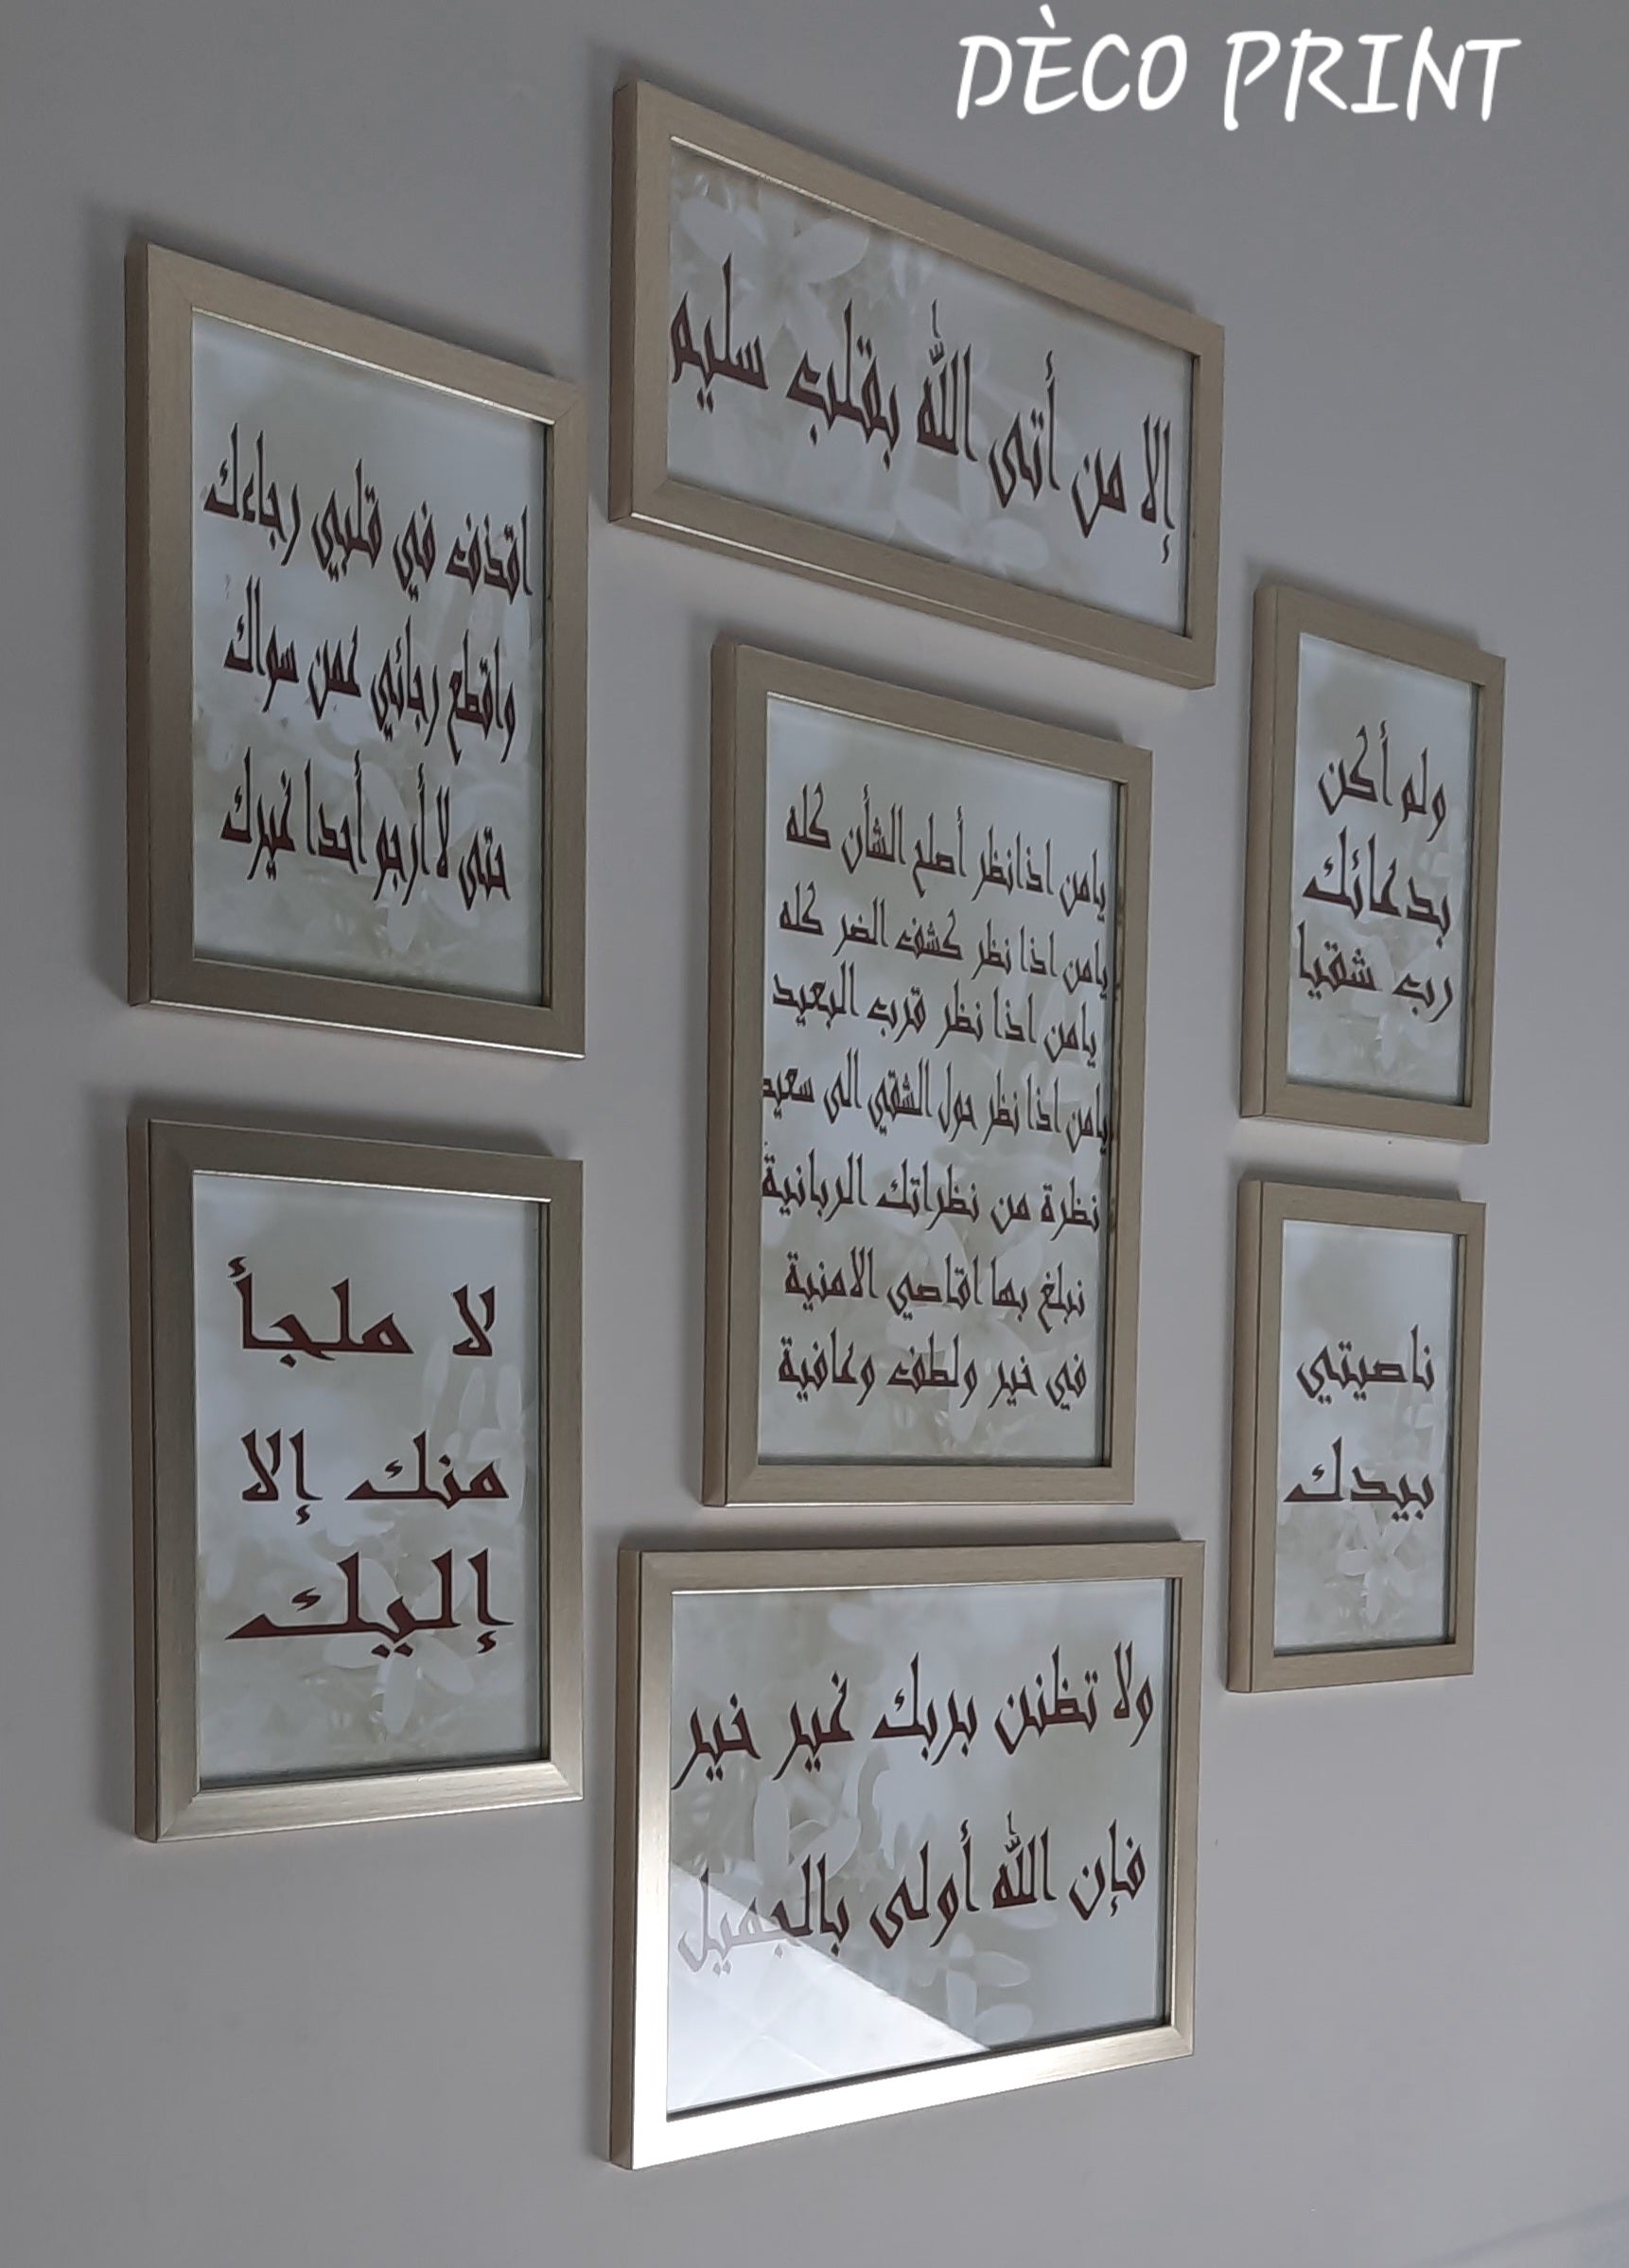 DÈCO PRINT
إلا من أتى الله بقلب سليم
اقذف في قلبي رجاءك
واقطع رجائي عمن سواك
حتى لا أرجو أحدا غيرك
ولم أكن
بدعائك
رب شقيا
يامن اذانظر أصلح الشأن كله
يامن اذا نظر كشف الضر كله
يامن اذا نظر قرب البعيد
يامن اذا نظر حول الشقي الى سعيد
نظرة من نظراتك الربانية
نبلغ بها اقاصي الامنية
في خير ولطف وعافية
لا ملجأ
منك إلا
إليك
ناصيتي
بيدك
ولا تظنن بربك غير خير
فإن الله أولى بالجميل